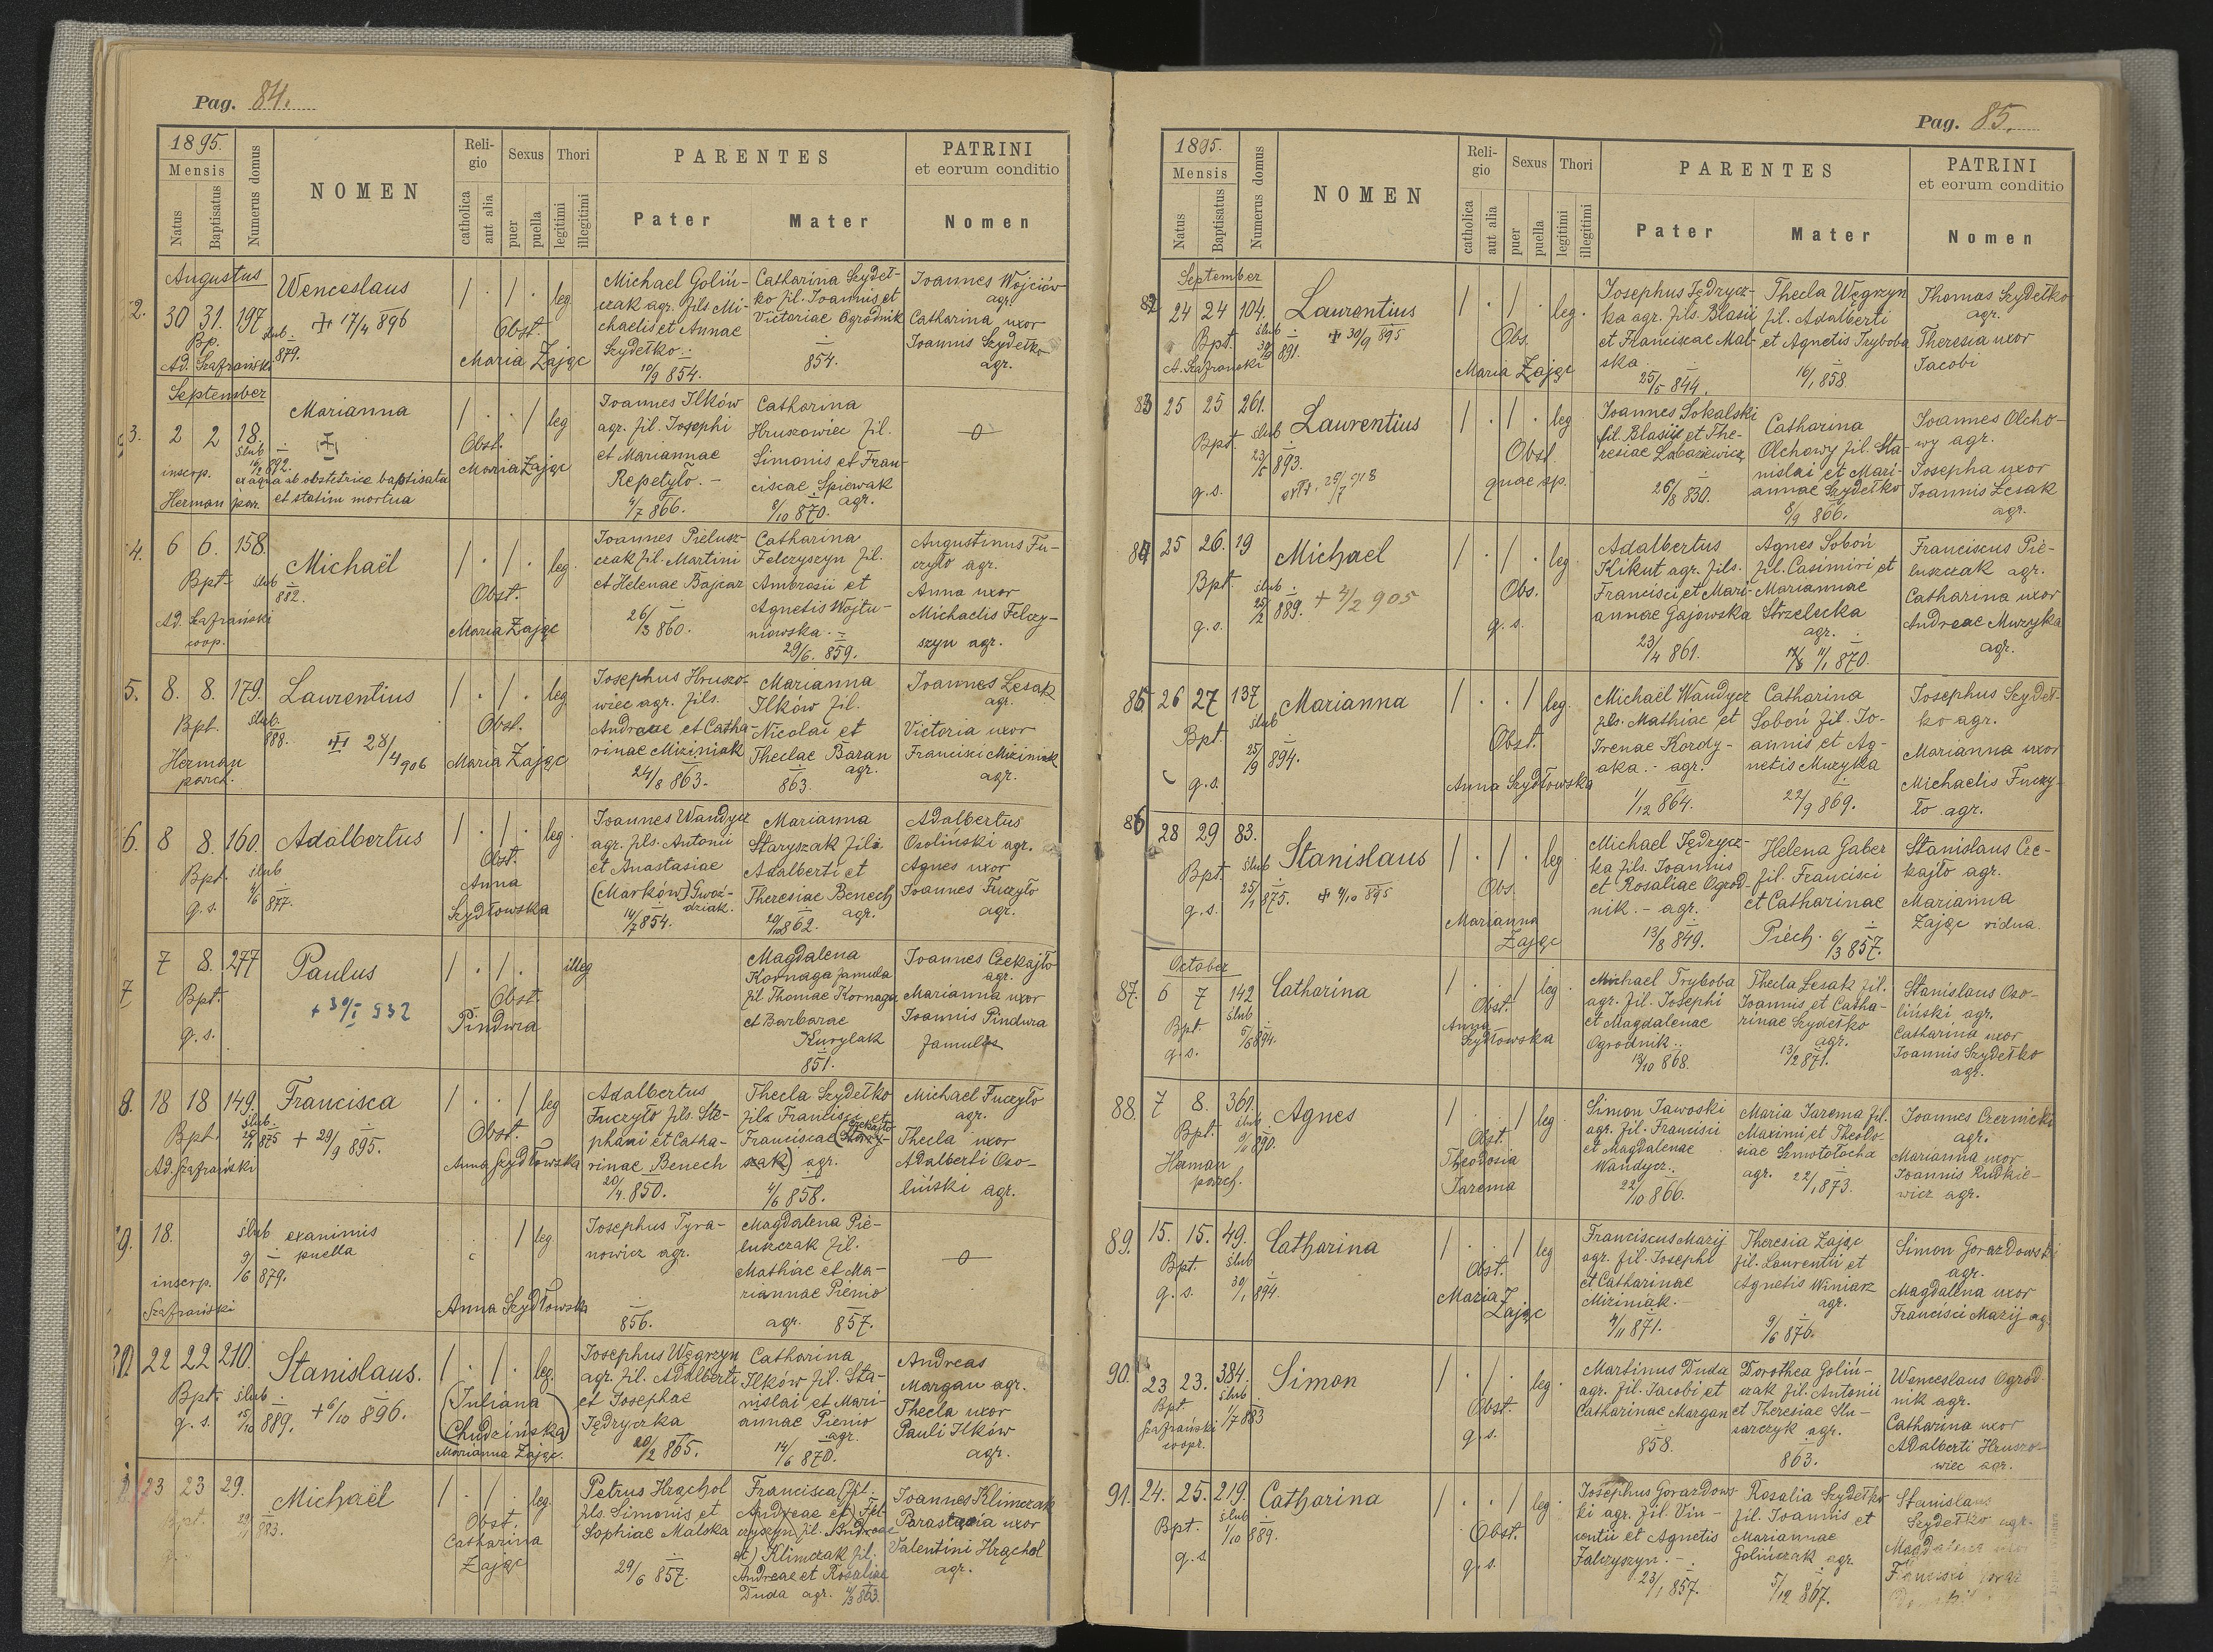 Pag. 84.
1895.
Mensis
Natus
Baptisatus
Numerus domus
NOMEN
Reli-
gio
catholica
aut alia
Sexus
puer
puella
Thori
legitimi
illegitimi
PARENTES
Pater
Mater
PATRINI
et eorum conditio
Nomen
Augustus
2. 30 31. 197
Bp.
Ad. Szafrański
ślub
879.
Wenceslaus
17/4 896
1 . 1 . leg.
Obst.
Maria Zając
Michael Goliń-
czak agr. fils Mi-
chaelis et Annae
Szydełko
10/9 854.
Catharina Szydeł-
ko fil. Joannis et
Victoriae Ogrodnik
854.
Joannes Wojciów
agr.
Catharina uxor
Joannis Szydełko
agr.
September
3. 2 2 18.
ślub
16/2 892.
inscrp.
Herman par.
Marianna
ex aqua ab obstetrice baptisata
et statim mortua
1 . . 1 leg
Obst.
Maria Zając
Joannes Ilków
agr. fil. Josephi
et Mariannae
Repetyło. -
4/7 866.
Catharina
Hruszowiec fil.
Simonis et Fran-
ciscae Spiewak
agr.
9/10 870.
4. 6 6. 158.
Bpt.
ślub
882.
Ad. Szafrański
coop.
Michaël
1 . 1 . leg.
Obst.
Maria Zając
Joannes Pielusz-
czak fil. Martini
et Helenae Bajcar
26/3 860.
Catharina
Felczyszyn fil.
Ambrosii et
Agnetis Wojtu-
niowska.
29/6. 859.
Augustinus Fu-
czyło agr.
Anna uxor
Michaelis Felczy-
szyn agr.
5. 8. 8. 179.
Bpt.
ślub
888.
Herman
parch.
Laurentius
28/4 906
1 . 1 . leg
Obst.
Maria Zając
Josephus Hruszo-
wiec agr. fils.
Andreae et Catha-
rinae Miziniak
24/8 863.
Marianna
Ilków fil.
Nicolai et
Theclae Baran
agr.
863.
Joannes Lesak
agr.
Victoria uxor
Francisci Miziniak
agr.
6. 8 8. 160.
Bpt. ślub
g.s. 4/6 877.
Adalbertus
1 . 1 . leg.
Obst.
Anna
Szydłowska
Joannes Wandycz
agr. fils. Antonii
et Anastasiae
(Marków) Gwoź-
dziak.
14/7 854.
Marianna
Staryszak fil.
Adalberti et
Theresiae Benech
agr.
862.
Adalbertus
Osoliński agr.
Agnes uxor
Joannes Fuczyło
agr.
7 7 8. 277
Bpt.
g.s.
Paulus
+ 30/I 932
1 . 1 . illeg
Obst.
Pindura
Magdalena
Kornaga famula
fil Thomae Kornaga
et Barbarae
Kurylak
851.
Joannes Czekajło
agr.
Marianna uxor
Joannis Pindura
famulus
8. 18 18 149.
Bpt.
ślub.
875
Ad. Szafrański
Francisca
+ 29/9 895.
1 . . 1 leg
Obst.
Anna Szydłowska
Adalbertus
Fuczyło fils. Ste-
phani et Catha-
rinae Benech
20/4. 850.
Thecla Szydełko
fila Francisci et
Franciscae
agr.
4/6 858.
Michael Fuczyło
agr.
Thecla uxor
Adalberti Oso-
liński agr.
9. 18.
ślub
9/6 879.
inscrp.
Szafrański
exanimis
puella
1 leg
Anna Szydłowska
Josephus Tyra-
nowicz agr.
856.
Magdalena Pie-
luszczak fil.
Mathiae et Ma-
riannae Pienio
agr. 857.
22 22 210.
Bpt. ślub
g. s. 15/10 889.
Stanislaus.
+ 6/10 896.
1 . 1 . leg.
(Juliana
Chudzińska)
Marianna Zając.
Josephus Węgrzyn
agr. fil. Adalberti
et Josephae
Jędryczka
20/2 865.
Catharina
Ilków fil. Sta-
nislai et Mari-
annae Pienio
agr.
14/6 870.
Andreas
Margan agr.
Thecla uxor
Pauli Ilków
agr.
23 23 29.
Bpt.
883.
Michaël
1 . 1 . leg.
Obst.
Catharina
Zając
Petrus Hrąchol
fils. Simonis et
Sophiae Malska
29/6 857.
Francisca (fil.
Andreae et) Fel-
czyszyn fil. Andreae
et) Klimczak fil.
Andreae et Rosaliae
Duda agr. 4/3 863.
Joannes Klimczak
Parastasia uxor
Valentini Hrąchol
agr.
Pag. 85.
1895.
Mensis
Natus
Baptisatus
Numerus domus
NOMEN
Reli-
gio
catholica
aut alia
Sexus
puer
puella
Thori
legitimi
illegitimi
PARENTES
Pater
Mater
PATRINI
et eorum conditio
Nomen
September
82 24 24 104.
Bpt. ślub
891.
A. Szafrański
Laurentius
30/9 895
1 . 1 . leg.
Obs.
Maria Zając
Josephus Jędrycz-
ka agr. fils. Blasii
et Franciscae Mal-
ska
25/5 844.
Thecla Węgrzyn
fil. Adalberti
et Agnetis Tryboba
16/1 858
Thomas Szydełko
agr.
Theresia uxor
Jacobi
83 25 25 261.
Bpt. ślub
23/5 893.
g.s.
Laurentius
25/7 918
1 . 1 . leg
Obst.
quae sp.
Joannes Sokalski
fil. Blasii et The-
resiae Łabaziewicz
26/8 830.
Catharina
Olchowy fil. Sta-
nislai et Mari-
annae Szydełko
8/9 866.
Joannes Olcho-
wy agr.
Josepha uxor
Joannis Lesak
agr.
84 25 26. 19
Bpt. ślub
25/2 889.
g.s.
Michael
+ 4/2 905
1 . 1 . leg
Obs.
g.s.
Adalbertus
Kikut agr. fils.
Francisci et Mari-
annae Gajowska
23/4 861.
Agnes Soboń
fil. Casimiri et
Mariannae
Strzelecka
agr.
870.
Franciscus Pie-
luszczak agr.
Catharina uxor
Andreae Muzyka
agr.
85 26 27 137
Bpt. ślub
25/9 894.
g.s.
Marianna
1 . . 1 leg.
Obst.
Anna Szydłowska
Michaël Wandycz
fils. Mathiae et
Irenae Kordy-
aka. - agr.
1/12 864.
Catharina
Soboń fil. Jo-
annis et Ag-
netis Muzyka
22/9 869.
Josephus Szydeł-
ko agr.
Marianna uxor
Michaelis Fuczy-
ło agr.
86 28 29 83.
Bpt. ślub
25/1 875.
g.s.
Stanislaus
4/10 895
1 . 1 . leg
Obs.
Marianna
Zając
Michael Jędrycz-
ka fils. Joannis
et Rosaliae Ogrod-
nik. - agr.
13/8 849.
Helena Gaber
fil. Francisci
et Catharinae
Piech. 6/3 857.
Stanislaus Cze-
kajło agr.
Marianna
Zając vidua.
October
87. 6 7 142
Bpt. ślub
g.s. 5/6 894.
Catharina
1 . . 1 leg
Obst.
Anna
Szydłowska
Michael Tryboba
agr. fil. Josephi
et Magdalenae
Ogrodnik
13/10 868.
Thecla Lesak fil.
Joannis et Catha-
rinae Szydełko
agr.
13/2 871.
Stanislaus Oso-
liński agr.
Catharina uxor
Joannis Szydełko
agr.
88. 7 8. 361.
Bpt. ślub
890.
Herman
parch.
Agnes
1 . . 1 leg
Obst.
Theodosia
Jarema
Simon Jawoski
agr. fil. Francisci
et Magdalenae
Wandycz.
22/10 866.
Maria Jarema fil.
Maximi et Theodo-
siae
agr. 22/1 873.
Joannes Czernicki
agr.
Marianna uxor
Joannis Rudkie-
wicz agr.
89. 15. 15. 49.
Bpt. ślub
g.s. 30/1 894.
Catharina
1 . . 1 leg
Obst.
Maria
Zając
Franciscus Mazij
agr. fil. Josephi
et Catharinae
Miziniak. -
4/11 871.
Theresia Zając
fil. Laurentii et
Agnetis Winiarz
agr.
9/6 876.
Simon Gorazdowski
agr.
Magdalena uxor
Francisci Mazij agr.
90. 23 23. 384.
Bpt. ślub
1/7 883
Szafrański
coopr.
Simon
1 . 1 . leg
Obst.
g.s.
Martinus Duda
agr. fil. Jacobi et
Catharinae Margan
858.
Dorothea Goliń-
czak fil. Antonii
et Theresiae Slu-
sarczyk agr.
863.
Wenceslaus Ogrod-
nik agr.
Catharina uxor
Adalberti Hruszo-
wiec agr.
91. 24. 25. 219.
Bpt. ślub
1/10 889.
g.s
Catharina
1 . . 1 leg
Obst.
g.s.
Josephus Gorazdows-
ki agr. fil. Vin-
centii et Agnetis
Falczyszyn. -
23/1 857.
Rosalia Szydełko
fil. Joannis et
Mariannae
Golińczak agr.
5/12 867.
Stanislaus
Szydełko agr.
Magdalena uxor